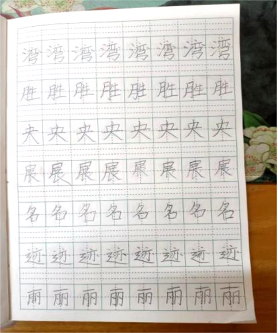 湾湾湾湾湾湾湾湾湾
胜胜胜胜胜胜胜胜胜
央央央央央央央央央
展展展展展展展展展
名名名名名名名名名
迹迹迹迹迹迹迹迹
丽丽丽丽丽丽丽丽